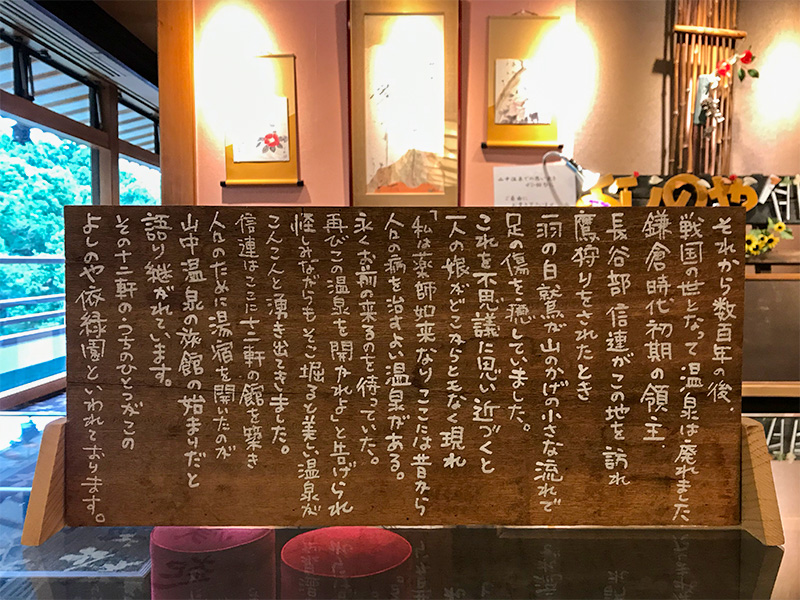 それから数百年の後、
戦国の世となって温泉は廃れました
鎌倉時代初期の領主、
長谷部信連がこの地を訪れ
鷹狩りをされたとき
一羽の白鷺が山のかげの小さな流れで
足の傷を癒していました。
これを不思議に思い近づくと
一人の娘がどこからともなく現れ
「私は薬師如来なりここには昔から
人々の病を治すよい温泉がある。
永くお前の来るのを待っていた。
再びこの温泉を開かれよ」と告げられ
怪しみながらもそこ堀ると美しい温泉が
こんこんと湧き出てきました。
信連はここに十二軒の館を築き
人々のために湯宿を開いたのが
山中温泉の旅館の始まりだと
語り継がれています。
その十二軒のうちのひとつがこの
よしのや依緑園といわれております。